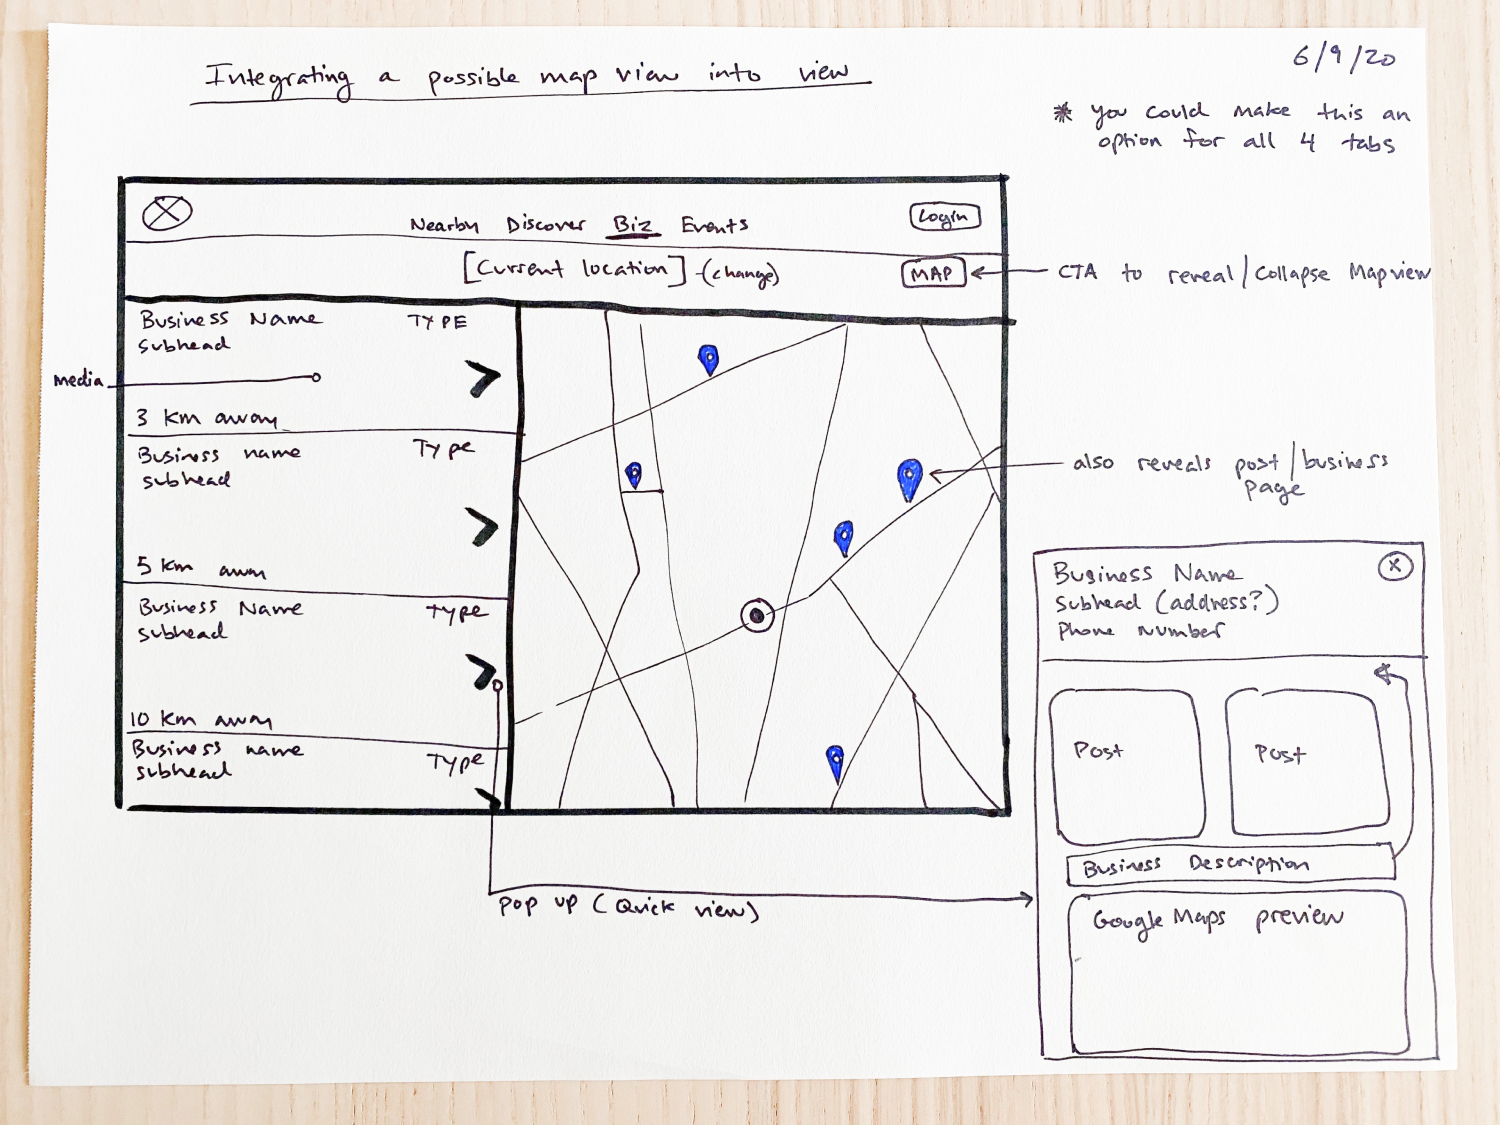 Integrating a possible map view into view
6/9/20
* you could make this an
option for all 4 tabs
Nearby Discover Biz Events
Login
[Current location] -(change)
MAP
CTA to reveal/Collapse Mapview
Business Name
TYPE
subhead
media
3 km away
Business name
Type
subhead
5 km away
Business Name
Type
subhead
10 km away
Business name
Type
subhead
also reveals post/business
page
Pop up (Quick view)
Business Name
X
Subhead (address?)
Phone Number
Post
Post
Business Description
Google Maps preview